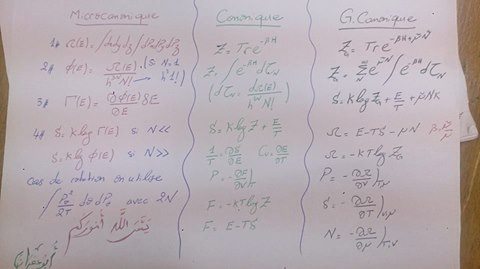 Microcanonique
1# Ω(E) = ∫dxdydz ∫dPxdPydPz
2# ϕ(E) = Ω(E) / h^3N N! (si N=1 → 1!)
3# Γ(E) = ∂ϕ(E)/∂E δE
4# S = k log Γ(E) si N <<
S = k log ϕ(E) si N >>
Cas de rotation on utilise
avec 2N
يسّر الله أموركم
Canonique
Z = Tr e^-βH
Z = ∫e^-βH dτN
(dτN = dΩ(E) / h^3N N!)
S = k log Z + E/T
1/T = ∂S/∂E Cv = ∂E/∂T
P = -∂F/∂V)T
F = -kT log Z
F = E - TS
G. Canonique
ZG = Tr e^-βH+μ̃N
ZG = Σ e^μ̃N ∫e^-βH dτN
S = k log ZG + E/T + μ̃Nk
Ω = E - TS - μN
Ω = -kT log ZG
P = -∂Ω/∂V)
S = -∂Ω/∂T)V,μ
N = -∂Ω/∂μ)T,V